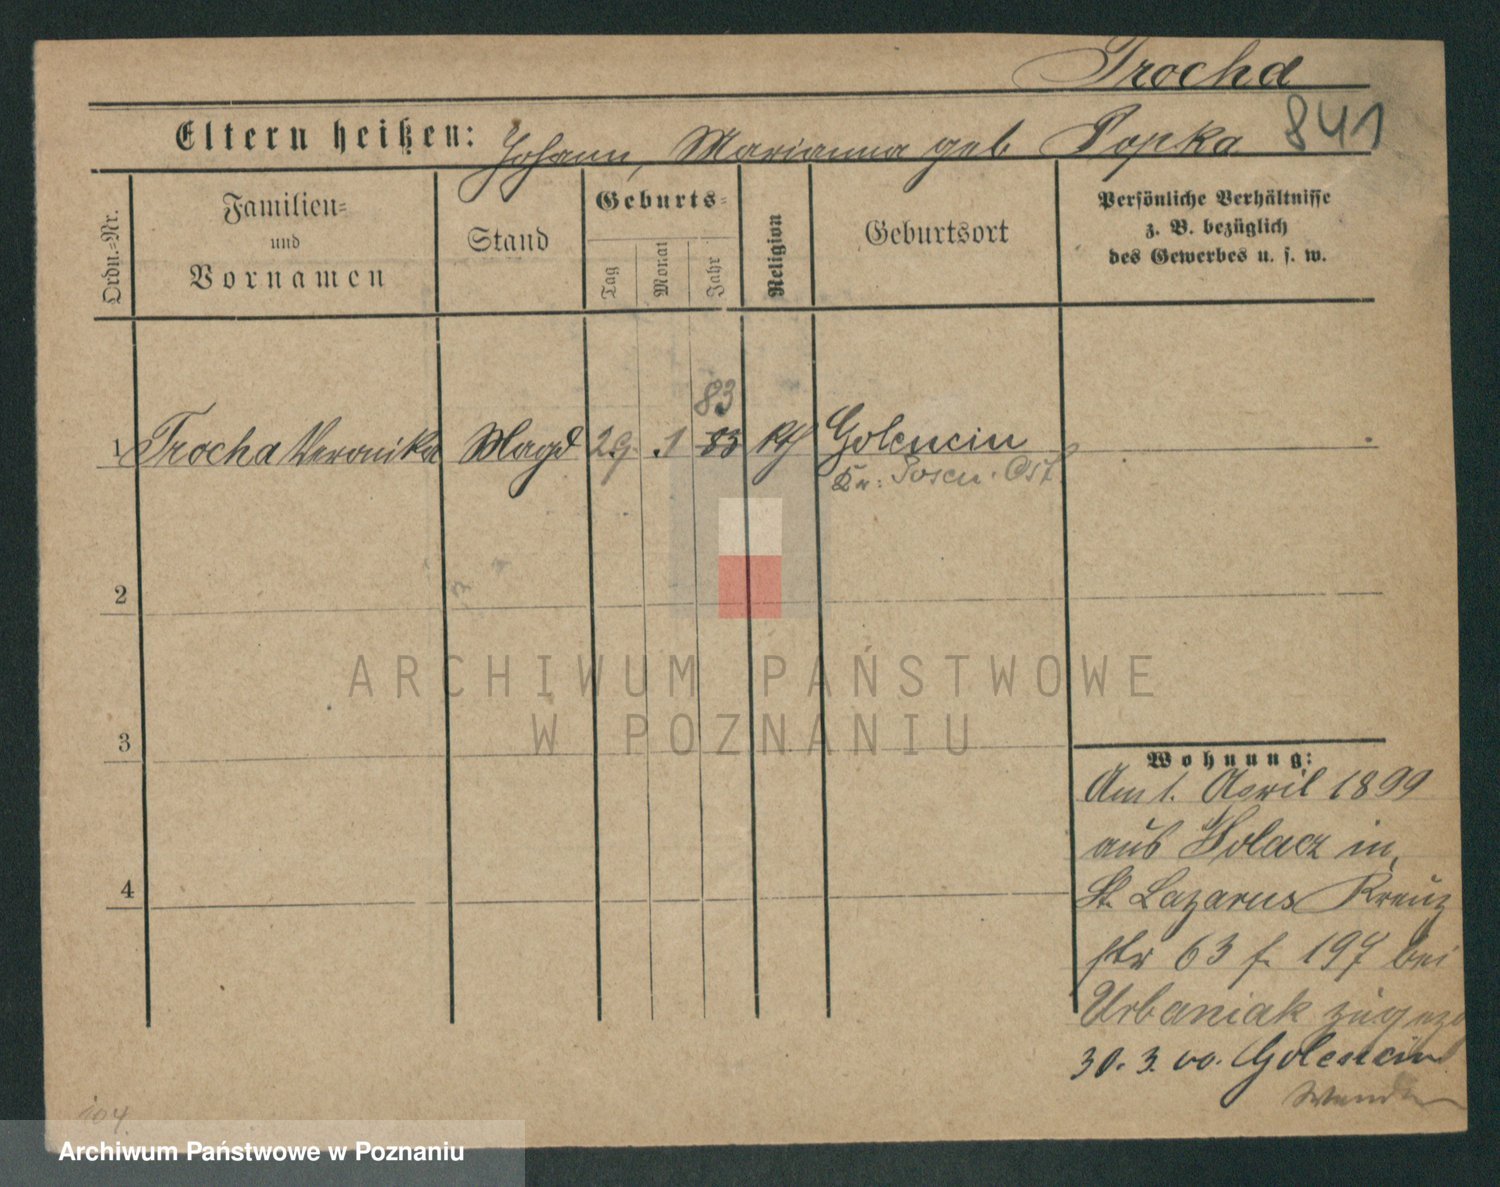 Trocha
841
Eltern heißen: Johann, Marianna geb Popka
Ordn.=Nr.
Familien=
und
Vornamen
Stand
Geburts=
Tag
Monat
Jahr
Religion
Geburtsort
Persönliche Verhältnisse
z. B. bezüglich
des Gewerbes u. s. w.
83
1 Trocha Veronika Magd 29. .1 83 kth Golencin
Kr: Posen. Ost
2
3
4
Wohnung:
Am 1. April 1899
aus Solacz in
St. Lazarus Kreuz
str 63 f. 197 bei
Urbaniak zugezo
30. 3. 00. Golencin
104
ARCHIWUM PAŃSTWOWE
W POZNANIU
Archiwum Państwowe w Poznaniu